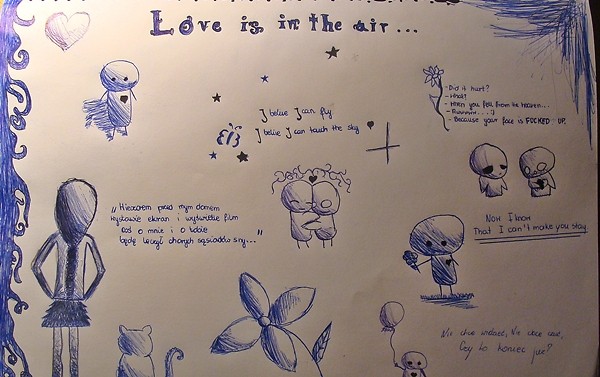 Love is in the air...
I belive I can fly
I belive I can touch the sky
- Did it hurt?
- What?
- When you fell from the heaven...
- Because your face is FUCKED UP.
„Wieczorem przed mym domem
wystawie ekran i wyświetle film
coś o mnie i o tobie
będę leczyć chorych sąsiadów sny..."
Now I know
That I can't make you stay
Nie chce widzieć, Nie chce
Czy to koniec już?